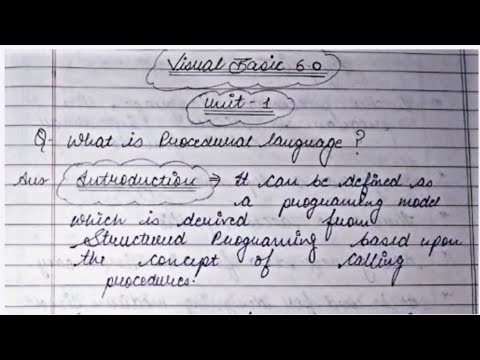 Visual Basic 6.0
Unit-1
Q- What is Procedural language?
Ans Introduction ⇒ It can be defined as
a programing model
which is derived from
Structured Programing based upon
the concept of calling
procedures.